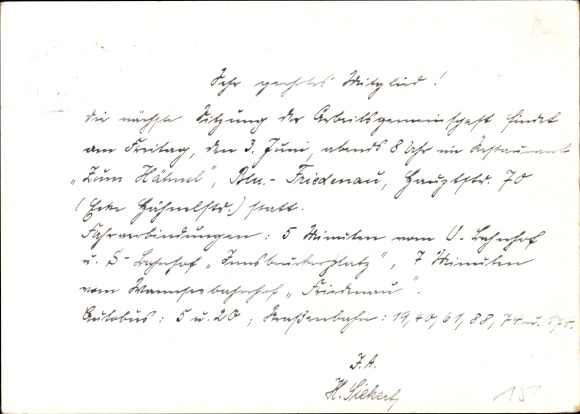 Sehr geehrtes Mitglied!
Die nächste Sitzung der Arbeitsgemeinschaft findet
am Freitag, den 3. Juni, abends 8 Uhr im Restaurant
„Zum Hähnel", Bln.-Friedenau, Hauptstr. 70
(Ecke Hähnelstr.) statt.
Fahrverbindungen: 5 Minuten vom U-Bahnhof
u. S-Bahnhof „Innsbruckerplatz", 7 Minuten
vom Wannseebahnhof „Friedenau".
Autobus: 5 u. 20; Straßenbahn: 19, 40, 61, 88, 74 u.
I.A.
H. Siekert
15